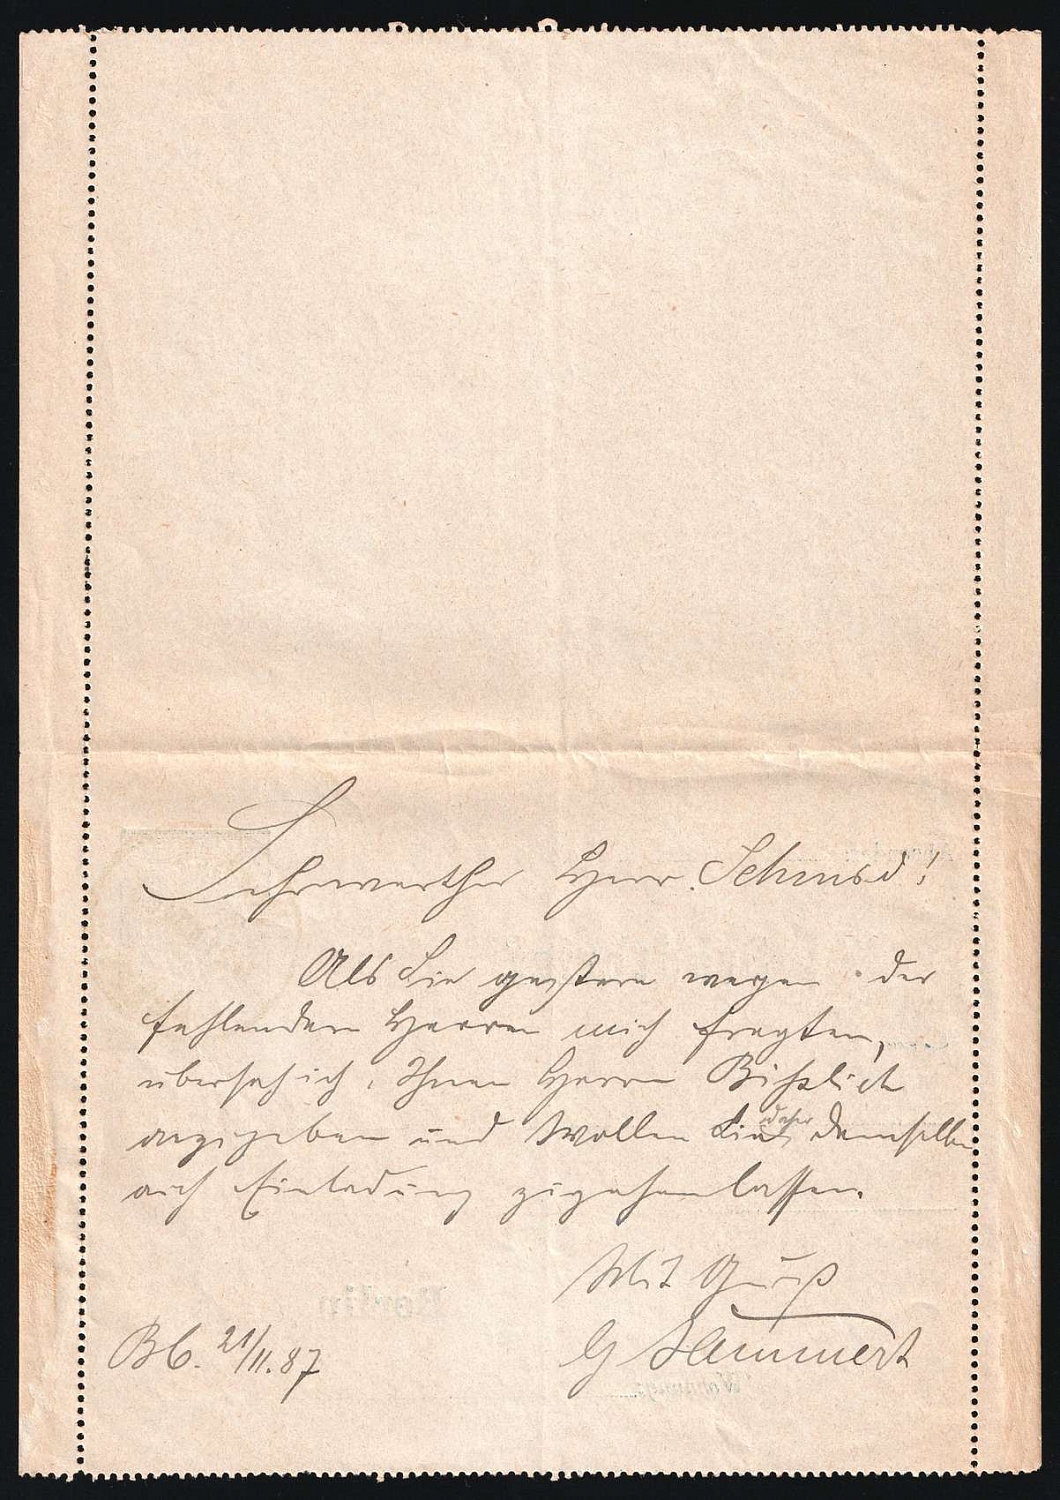 Sehrwerther Herr Schmid!
Als Sie gestern wegen der
fehlenden Herren mich fragten,
übersah ich, Ihnen Herrn
anzugeben und wollen Sie daher demselben
auch Einladung zugehen lassen.
Mit Gruß
G Hemmert
Bb. 21/11.87
Berlin
Wohnung